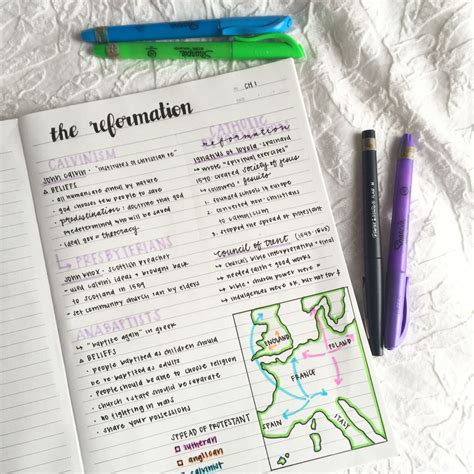 Sharpie
CH 1
the reformation
CALVINISM
John Calvin - "Institutes of Christian re"
& BELIEFS
• all humans are sinful by nature
• god chooses few people to save
• predestination: doctrine that god
predetermined who will be saved
• ideal gov = theocracy
↳ PRESBYTERIANS
John Knox - Scottish preacher
→ used calvin's ideas + brought back
to scotland in 1559
→ set community church run by elders
ANABAPTISTS
↳ "baptize again" in greek
& BELIEFS
• people baptized as children should
be re-baptized as adults
• people should be able to choose religion
• church + state should be separate
• no fighting in wars
• share your possessions
CATHOLIC
reformation
Ignatius of Loyola - spaniard
↳ wrote "spiritual exercises"
↳ 1540 created society of jesus
↳ members = jesuits
1. founded schools in europe
2. converted non-christians
to catholicism
3. stopped the spread of protestant
council of trent (1545-1563)
↳ church's bible interpretation = final
↳ needed faith + good works
↳ bible + church power
↳ indulgences were ok but not for $
SPREAD OF PROTESTANT
lutheran
anglican
calvinist
ENGLAND
POLAND
FRANCE
SPAIN
ITALY